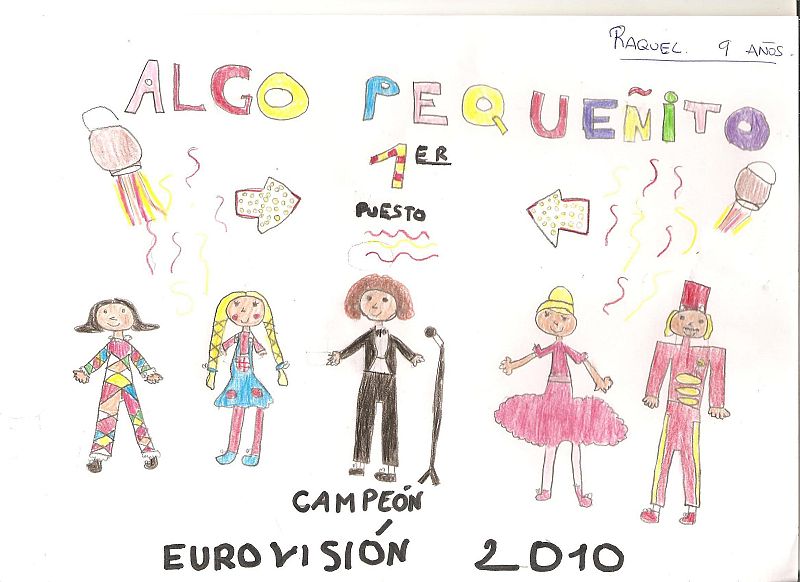 RAQUEL. 9 AÑOS.
ALGO PEQUEÑITO
1ER
PUESTO
CAMPEÓN
EUROVISIÓN 2010